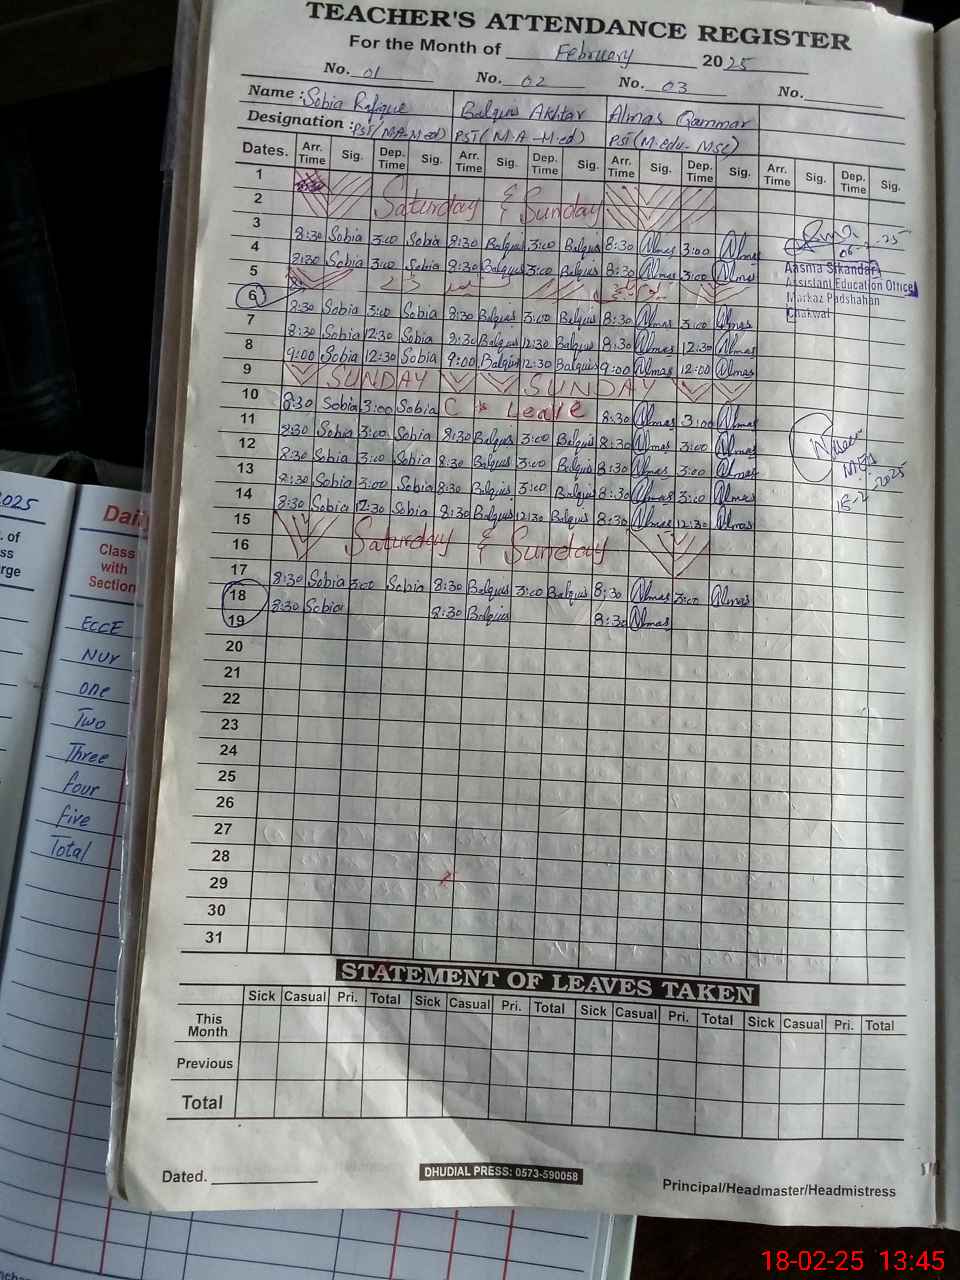 TEACHER'S ATTENDANCE REGISTER
For the Month of February 2025
No. 01 No. 02 No. 03 No.
Name : Sobia Rafique Balqus Akhtar Almas Qammar
Designation : PST(M.A-M.ed) PST(M.A-M.ed) PST(M.edu-MSc)
Dates. Arr. Time Sig. Dep. Time Sig. Arr. Time Sig. Dep. Time Sig. Arr. Time Sig. Dep. Time Sig. Arr. Time Sig. Dep. Time Sig.
1
2 Saturday & Sunday
3 8:30 Sobia 3:00 Sobia 8:30 Balqus 3:00 Balqus 8:30 Almas 3:00 Almas
4 8:30 Sobia 3:00 Sobia 8:30 Balqus 3:00 Balqus 8:30 Almas 3:00 Almas
5
6 8:30 Sobia 3:00 Sobia 8:30 Balqus 3:00 Balqus 8:30 Almas 3:00 Almas
7 8:30 Sobia 12:30 Sobia 8:30 Balqus 12:30 Balqus 8:30 Almas 12:30 Almas
8 9:00 Sobia 12:30 Sobia 9:00 Balqus 12:30 Balqus 9:00 Almas 12:00 Almas
9 SUNDAY SUNDAY
10 8:30 Sobia 3:00 Sobia C Leave 8:30 Almas 3:00 Almas
11 8:30 Sobia 3:00 Sobia 8:30 Balqus 3:00 Balqus 8:30 Almas 3:00 Almas
12 8:30 Sobia 3:00 Sobia 8:30 Balqus 3:00 Balqus 8:30 Almas 3:00 Almas
13 8:30 Sobia 3:00 Sobia 8:30 Balqus 3:00 Balqus 8:30 Almas 3:00 Almas
14 8:30 Sobia 12:30 Sobia 8:30 Balqus 12:30 Balqus 8:30 Almas 12:30 Almas
15
16 Saturday & Sunday
17 8:30 Sobia 3:00 Sobia 8:30 Balqus 3:00 Balqus 8:30 Almas 3:00 Almas
18 8:30 Sobia 8:30 Balqus 8:30 Almas
19
20
21
22
23
24
25
26
27
28
29
30
31
Aasma Sikandar
Assistant Education Officer
Markaz Padshahan
Chakwal
STATEMENT OF LEAVES TAKEN
Sick Casual Pri. Total Sick Casual Pri. Total Sick Casual Pri. Total Sick Casual Pri. Total
This Month
Previous
Total
Dated.
DHUDIAL PRESS: 0573-590058
Principal/Headmaster/Headmistress
2025
Class with Section
ECCE
Nur
one
Two
Three
four
five
Total
18-02-25 13:45